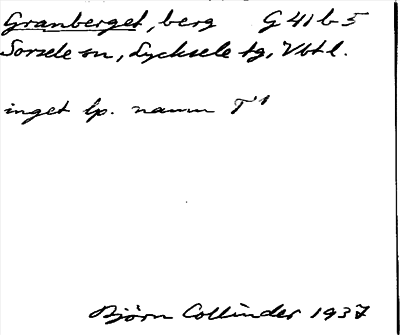 Granberget, berg G 41 b 5
Sorsele sn, Lycksele tg, Vbtl.
inget lp. namn T¹
Björn Collinder 1937